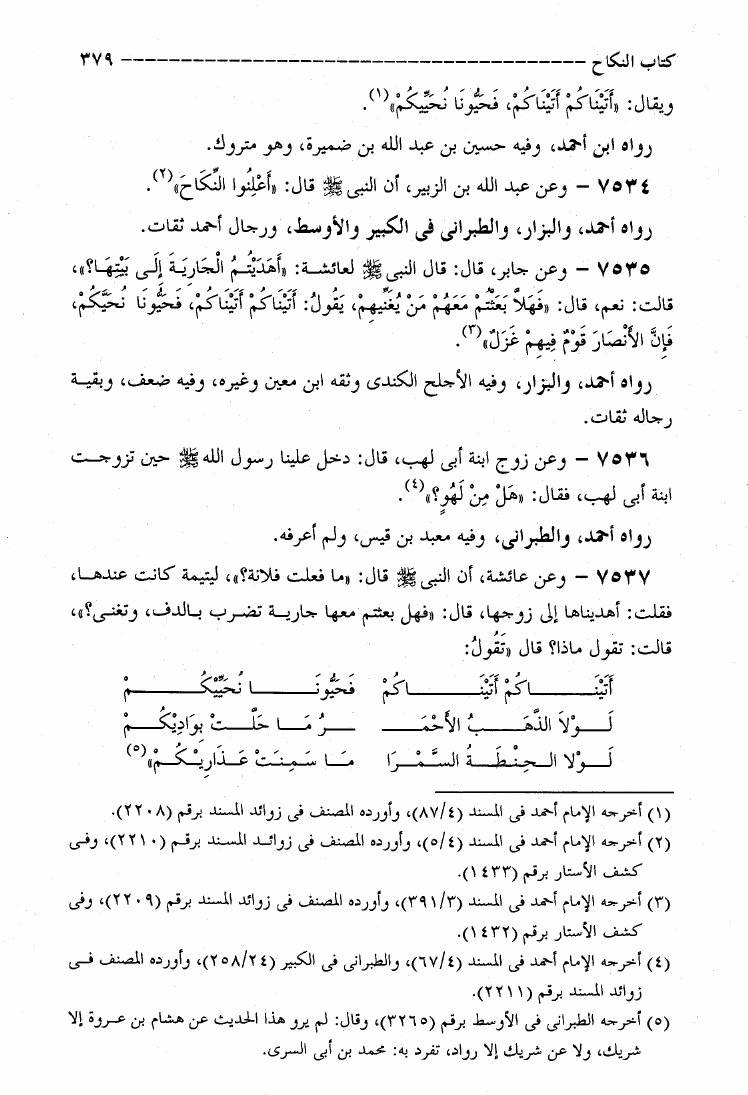 كتاب النكاح ------------------------------------- ٣٧٩
ويقال: «أَتَيْنَاكُمْ أَتَيْنَاكُمْ، فَحَيُّونَا نُحَيِّيكُمْ»(١).
رواه ابن أحمد، وفيه حسين بن عبد الله بن ضميرة، وهو متروك.
٧٥٣٤ – وعن عبد الله بن الزبير، أن النبى ﷺ قال: «أَعْلِنُوا النِّكَاحَ»(٢).
رواه أحمد، والبزار، والطبرانى فى الكبير والأوسط، ورجال أحمد ثقات.
٧٥٣٥ – وعن جابر، قال: قال النبى ﷺ لعائشة: «أَهَدَيْتُمُ الْجَارِيَةَ إِلَى بَيْتِهَا؟»،
قالت: نعم، قال: «فَهَلاَّ بَعَثْتُمْ مَعَهُمْ مَنْ يُغَنِّيهِمْ، يَقُولُ: أَتَيْنَاكُمْ أَتَيْنَاكُمْ، فَحَيُّونَا نُحَيَّكُمْ،
فَإِنَّ الأَنْصَارَ قَوْمٌ فِيهِمْ غَزَلٌ»(٣).
رواه أحمد، والبزار، وفيه الأجلح الكندى وثقه ابن معين وغيره، وفيه ضعف، وبقية
رجاله ثقات.
٧٥٣٦ – وعن زوج ابنة أبى لهب، قال: دخل علينا رسول الله ﷺ حين تزوجت
ابنة أبى لهب، فقال: «هَلْ مِنْ لَهْوٍ؟»(٤).
رواه أحمد، والطبرانى، وفيه معبد بن قيس، ولم أعرفه.
٧٥٣٧ – وعن عائشة، أن النبى ﷺ قال: «ما فعلت فلانة؟»، ليتيمة كانت عندها،
فقلت: أهديناها إلى زوجها، قال: «فهل بعثتم معها جارية تضرب بالدف، وتغنى؟»،
قالت: تقول ماذا؟ قال «تَقُولُ:
أَتَيْنَاكُمْ أَتَيْنَاكُمْ فَحَيُّونَا نُحَيِّيكُمْ
لَوْلاَ الذَّهَبُ الأَحْمَــ ــرُ مَا حَلَّتْ بِوَادِيْكُمْ
لَوْلا الحِنْطَةُ السَّمْرَا مَا سَمِنَتْ عَذَارِيْكُمْ»(٥)
(١) أخرجه الإمام أحمد فى المسند (٨٧/٤)، وأورده المصنف فى زوائد المسند برقم (٢٢٠٨).
(٢) أخرجه الإمام أحمد فى المسند (٥/٤)، وأورده المصنف فى زوائد المسند برقم (٢٢١٠)، وفى
كشف الأستار برقم (١٤٣٣).
(٣) أخرجه الإمام أحمد فى المسند (٣٩١/٣)، وأورده المصنف فى زوائد المسند برقم (٢٢٠٩)، وفى
كشف الأستار برقم (١٤٣٢).
(٤) أخرجه الإمام أحمد فى المسند (٦٧/٤)، والطبرانى فى الكبير (٢٥٨/٢٤)، وأورده المصنف فى
زوائد المسند برقم (٢٢١١).
(٥) أخرجه الطبرانى فى الأوسط برقم (٣٢٦٥)، وقال: لم يرو هذا الحديث عن هشام بن عروة إلا
شريك، ولا عن شريك إلا رواد، تفرد به: محمد بن أبى السرى.